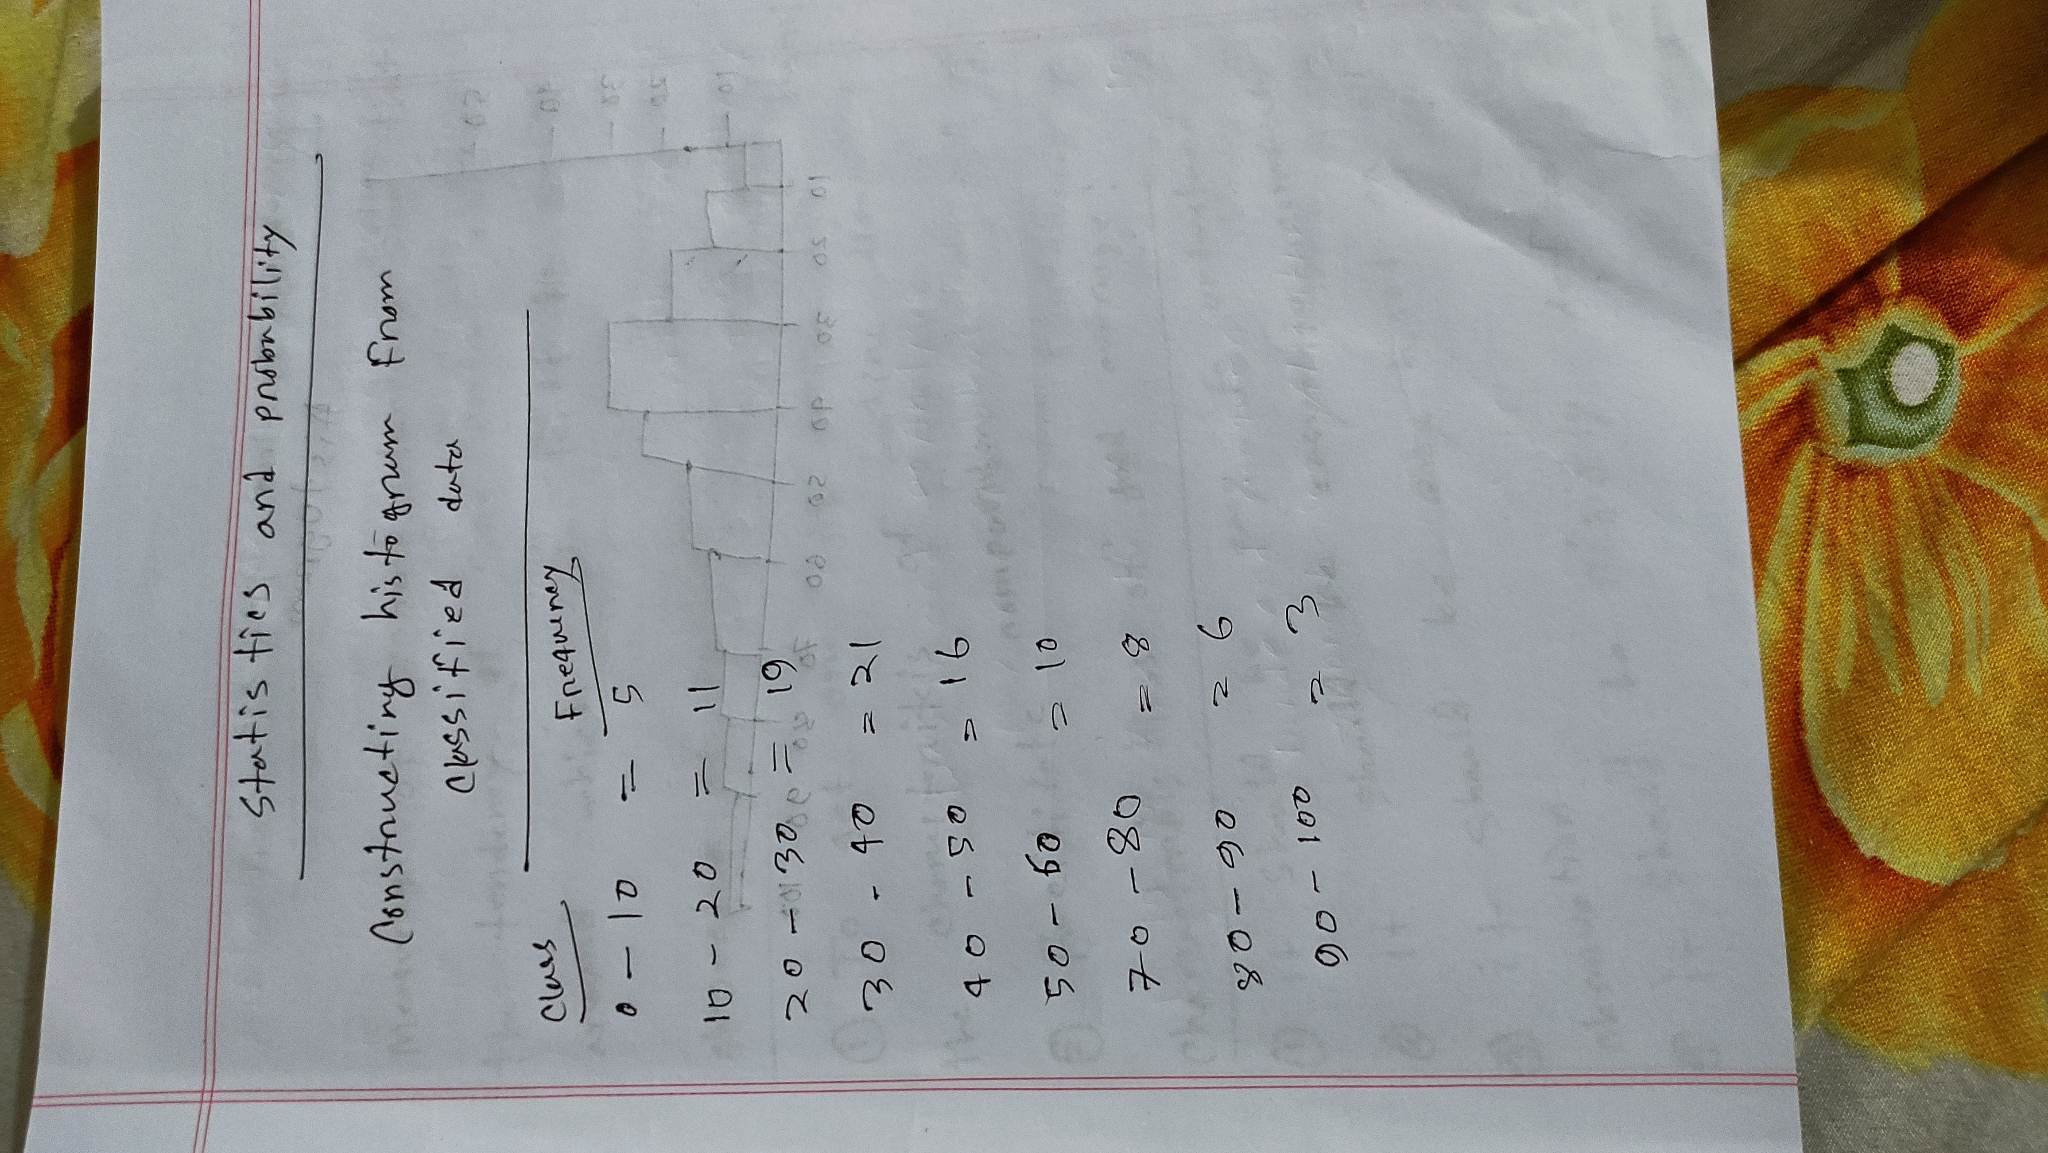 Statistics and probability
Constructing histogram from
classified data
Class Frequency
0 - 10 = 5
10 - 20 = 11
20 - 30 = 19
30 - 40 = 21
40 - 50 = 16
50 - 60 = 10
70 - 80 = 8
80 - 90 = 6
90 - 100 = 3